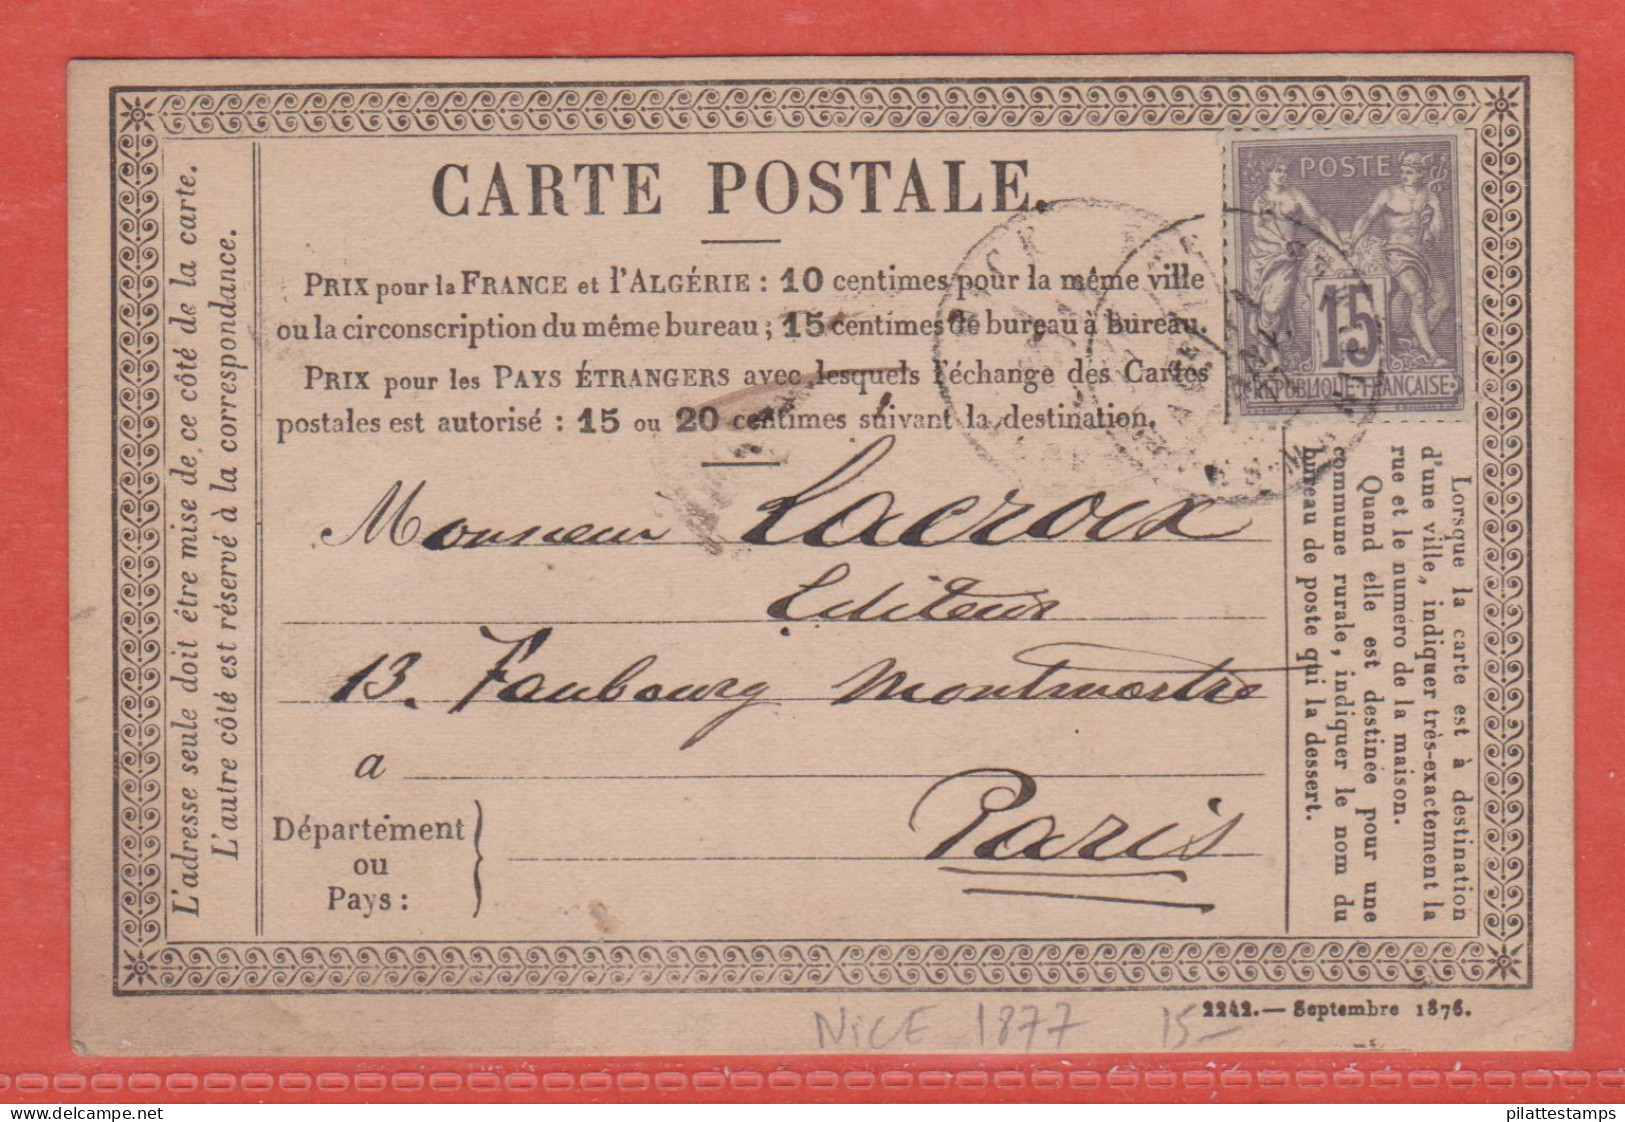 CARTE POSTALE.
POSTE
15
RÉPUBLIQUE FRANÇAISE
PRIX pour la FRANCE et l'ALGÉRIE : 10 centimes pour la même ville
ou la circonscription du même bureau ; 15 centimes de bureau à bureau.
PRIX pour les PAYS ÉTRANGERS avec lesquels l'échange des Cartes
postales est autorisé : 15 ou 20 centimes suivant la destination.
L'adresse seule doit être mise de ce côté de la carte.
L'autre côté est réservé à la correspondance.
Monsieur Lacroix
Editeur
13. Faubourg Montmartre
a
Paris
Département
ou
Pays :
Lorsque la carte est à destination
d'une ville, indiquer très-exactement la
rue et le numéro de la maison.
Quand elle est destinée pour une
commune rurale, indiquer le nom du
bureau de poste qui la dessert.
2242.— Septembre 1876.
NICE 1877 15-
delcampe.net
pilattestamps